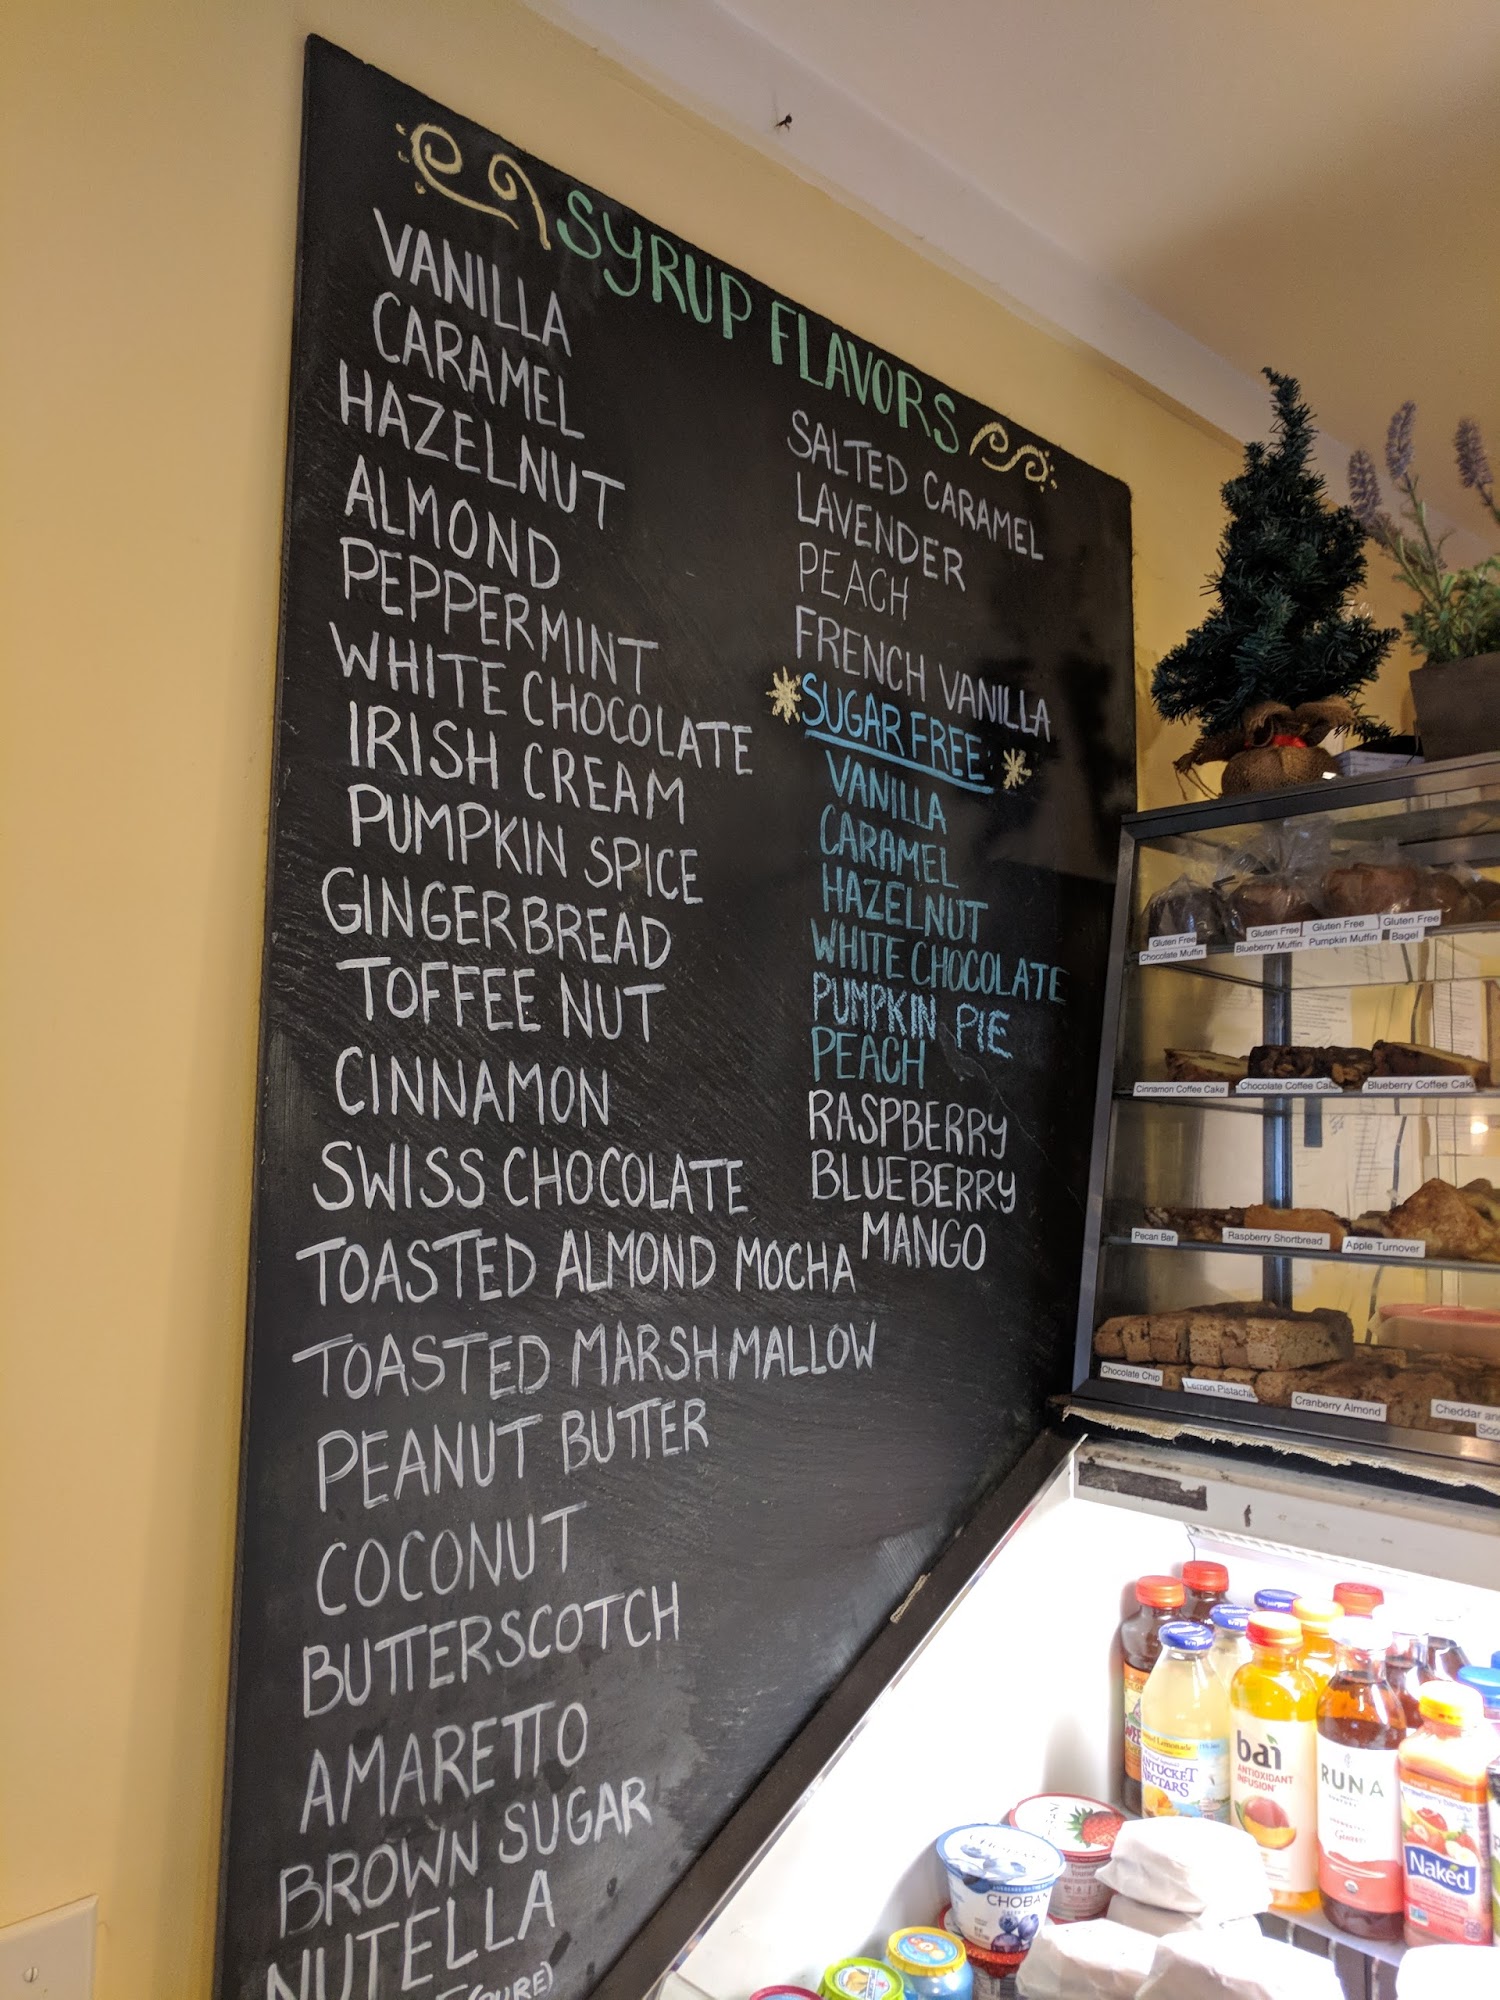 SYRUP FLAVORS
VANILLA
CARAMEL
HAZELNUT
ALMOND
PEPPERMINT
WHITE CHOCOLATE
IRISH CREAM
PUMPKIN SPICE
GINGERBREAD
TOFFEE NUT
CINNAMON
SWISS CHOCOLATE
TOASTED ALMOND MOCHA
TOASTED MARSHMALLOW
PEANUT BUTTER
COCONUT
BUTTERSCOTCH
AMARETTO
BROWN SUGAR
NUTELLA
(PURE)
SALTED CARAMEL
LAVENDER
PEACH
FRENCH VANILLA
SUGAR FREE:
VANILLA
CARAMEL
HAZELNUT
WHITE CHOCOLATE
PUMPKIN PIE
PEACH
RASPBERRY
BLUEBERRY
MANGO
Gluten Free
Chocolate Muffin
Gluten Free
Blueberry Muffin
Gluten Free
Pumpkin Muffin
Gluten Free
Bagel
Cinnamon Coffee Cake
Chocolate Coffee Cak
Blueberry Coffee Cak
Pecan Bar
Raspberry Shortbread
Apple Turnover
Chocolate Chip
Lemon Pistachi
Cranberry Almond
Cheddar an
Sco
NTUCKET
NECTARS
bai
ANTIOXIDANT
INFUSION
RUNA
Naked
CHOBA